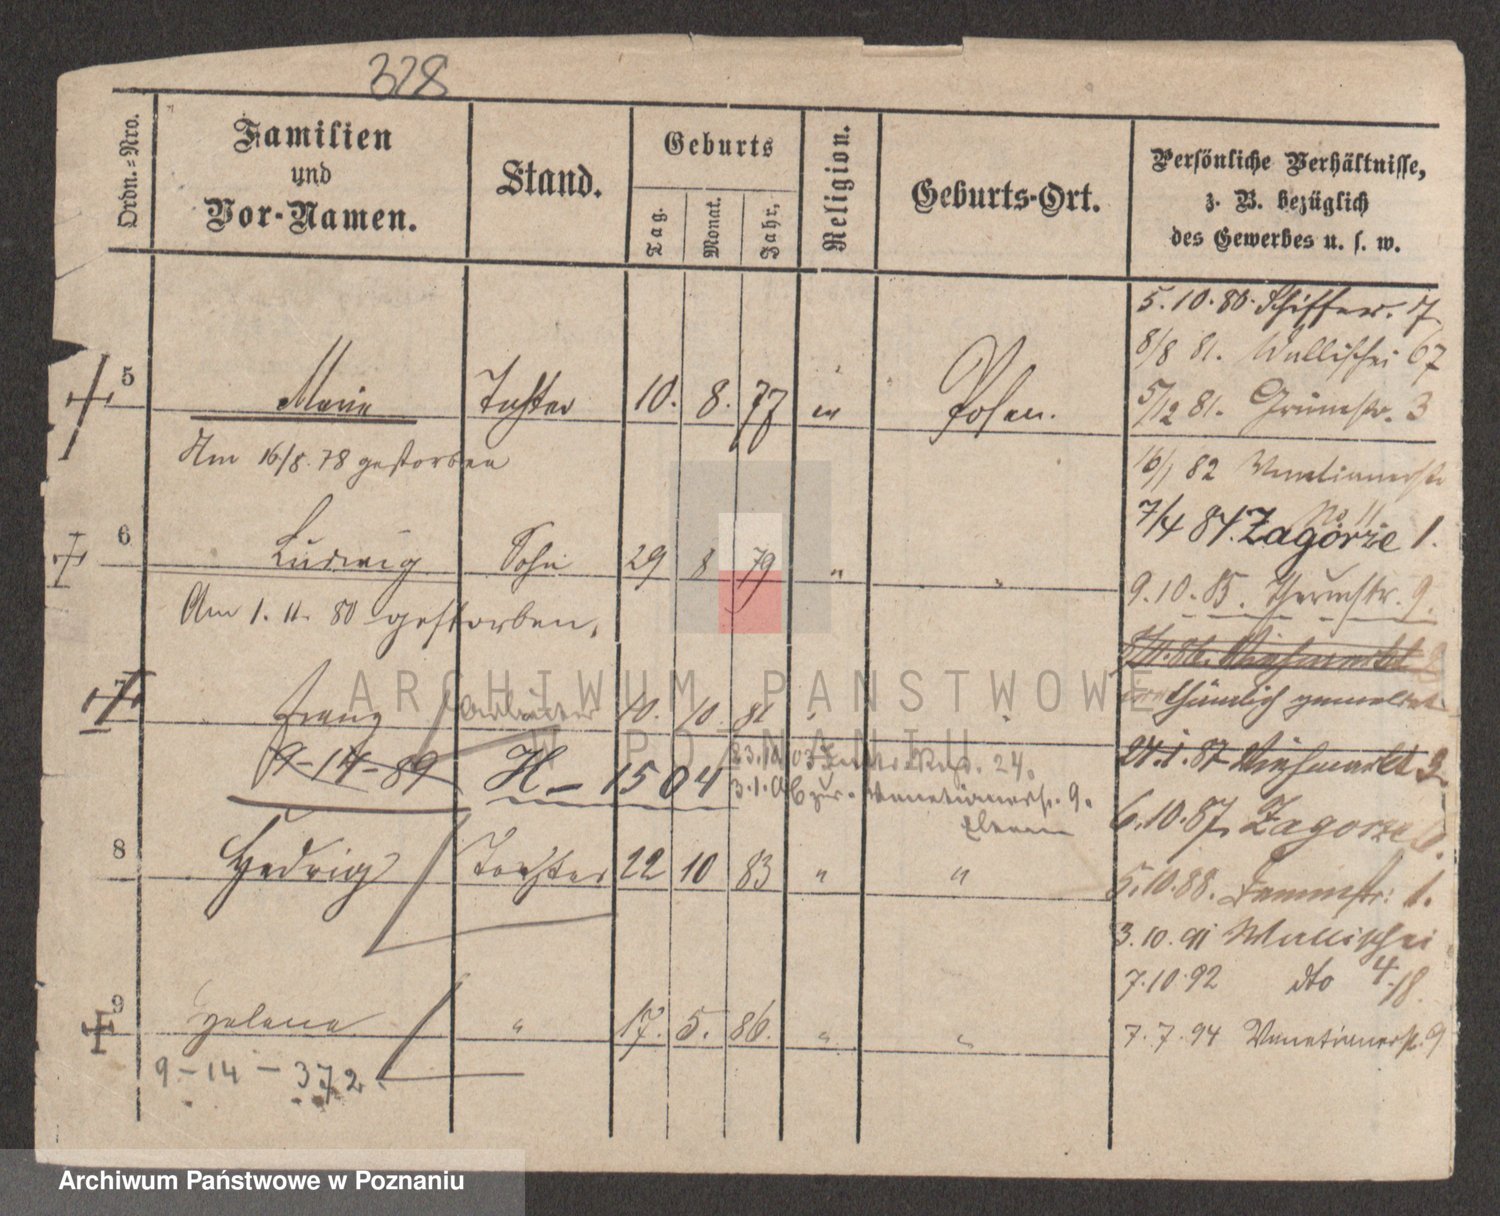 328
Ordn.=Nro.
Familien
und
Vor-Namen.
Stand.
Geburts
Tag.
Monat.
Jahr.
Religion.
Geburts-Ort.
Persönliche Verhältnisse,
z. B. bezüglich
des Gewerbes u. s. w.
5 Marie Tochter 10. 8. 77 " Posen.
Am 16/8. 78 gestorben
6 Ludwig Sohn 29 8 79 " "
Am 1. 11. 80 gestorben.
7 Franz Arbeiter 10. 10. 81 " "
9-14-89 H-1504
23.10.03 24.
3.1.06 zur. Venetianerstr. 9.
Eltern
8 Hedwig Tochter 22 10 83 " "
9 Helena " 17. 5. 86. " "
9-14-372
5.10.80. Schifferstr. 7
8/8 81. Wallischei 67
5/12 81. Grünestr. 3
16/1 82 Venetianerstr
No 11
7/4 84. Zagórze 1.
9.10.85. Thurmstr. 9.
86. Viehmarkt
thümlich gemeldet
24.1.87 Viehmarkt 2.
6.10.87. Zagorze
5.10.88. Dammstr. 1.
3.10.91 Wallischei
7.10.92 dto 4/18.
7.7.94 Venetianerstr. 9
ARCHIWUM PAŃSTWOWE
W POZNANIU
Archiwum Państwowe w Poznaniu